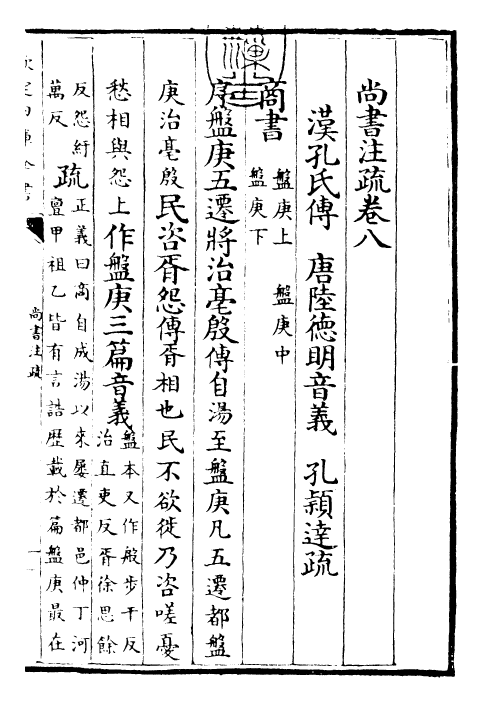 尚書注疏卷八
漢孔氏傳　唐陸德明音義　孔穎達疏
商書
盤庚上　盤庚中
盤庚下
序盤庚五遷將治亳殷傳自湯至盤庚凡五遷都盤
庚治亳殷民咨胥怨傳胥相也民不欲徙乃咨嗟憂
愁相與怨上作盤庚三篇音義盤本又作般步干反
治直吏反胥徐思餘
反怨紆
萬反
疏正義曰商自成湯以來屢遷都邑仲丁河
亶甲祖乙皆有言誥歴載於篇盤庚最在
尚書注疏
一